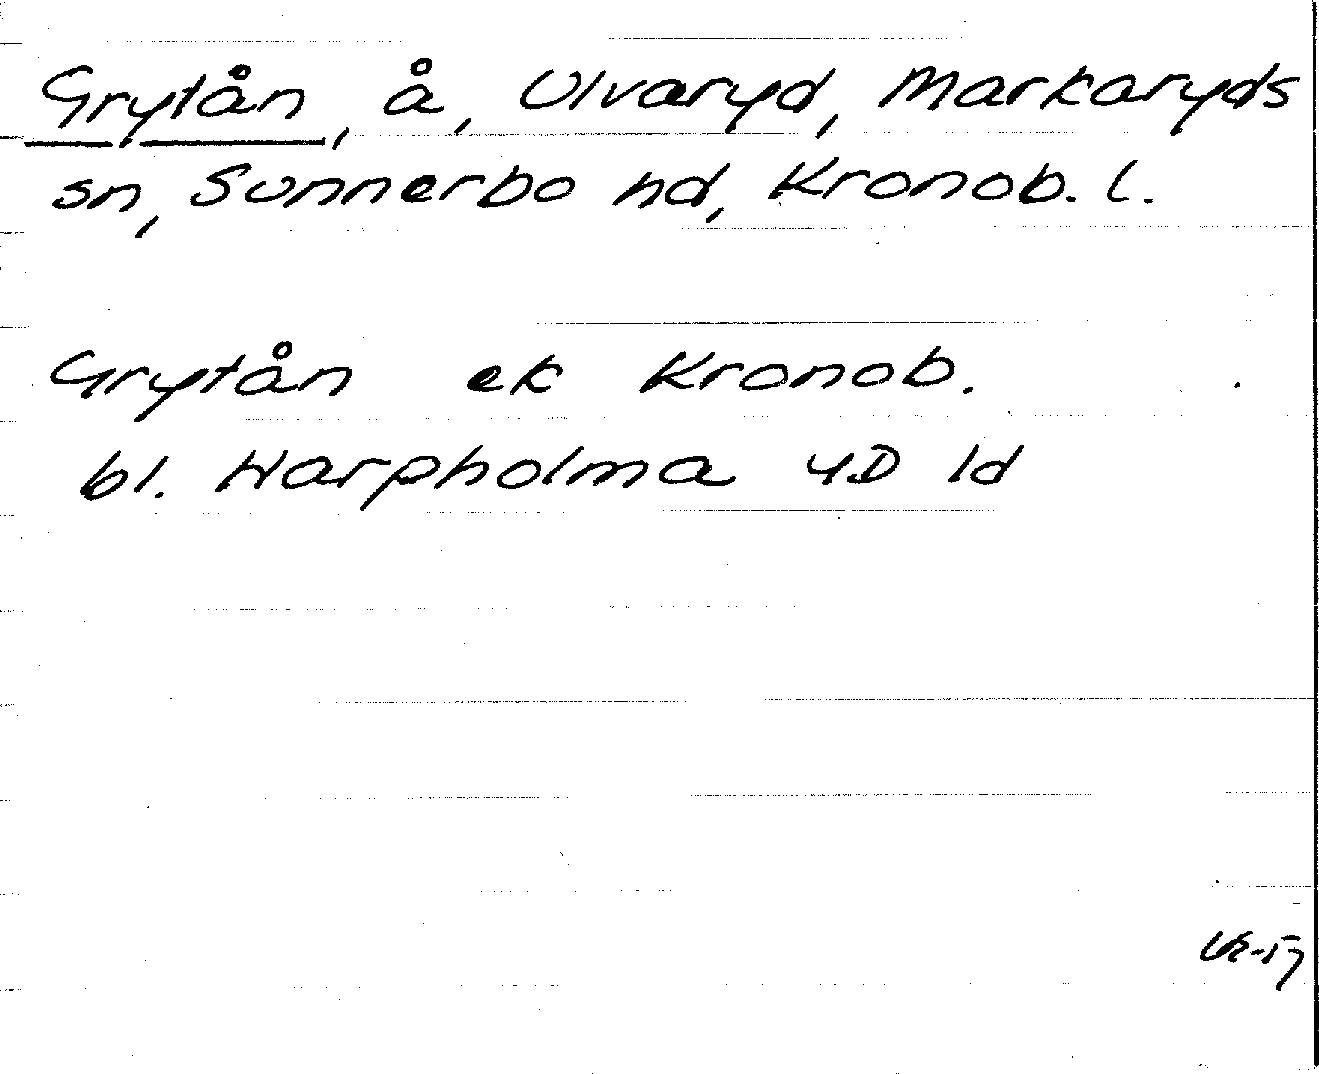 Grytån, å, Ulvaryd, Markaryds
sn, Sunnerbo hd, Kronob. l.
Grytån ek Kronob.
bl. Harpholma 4D 1d